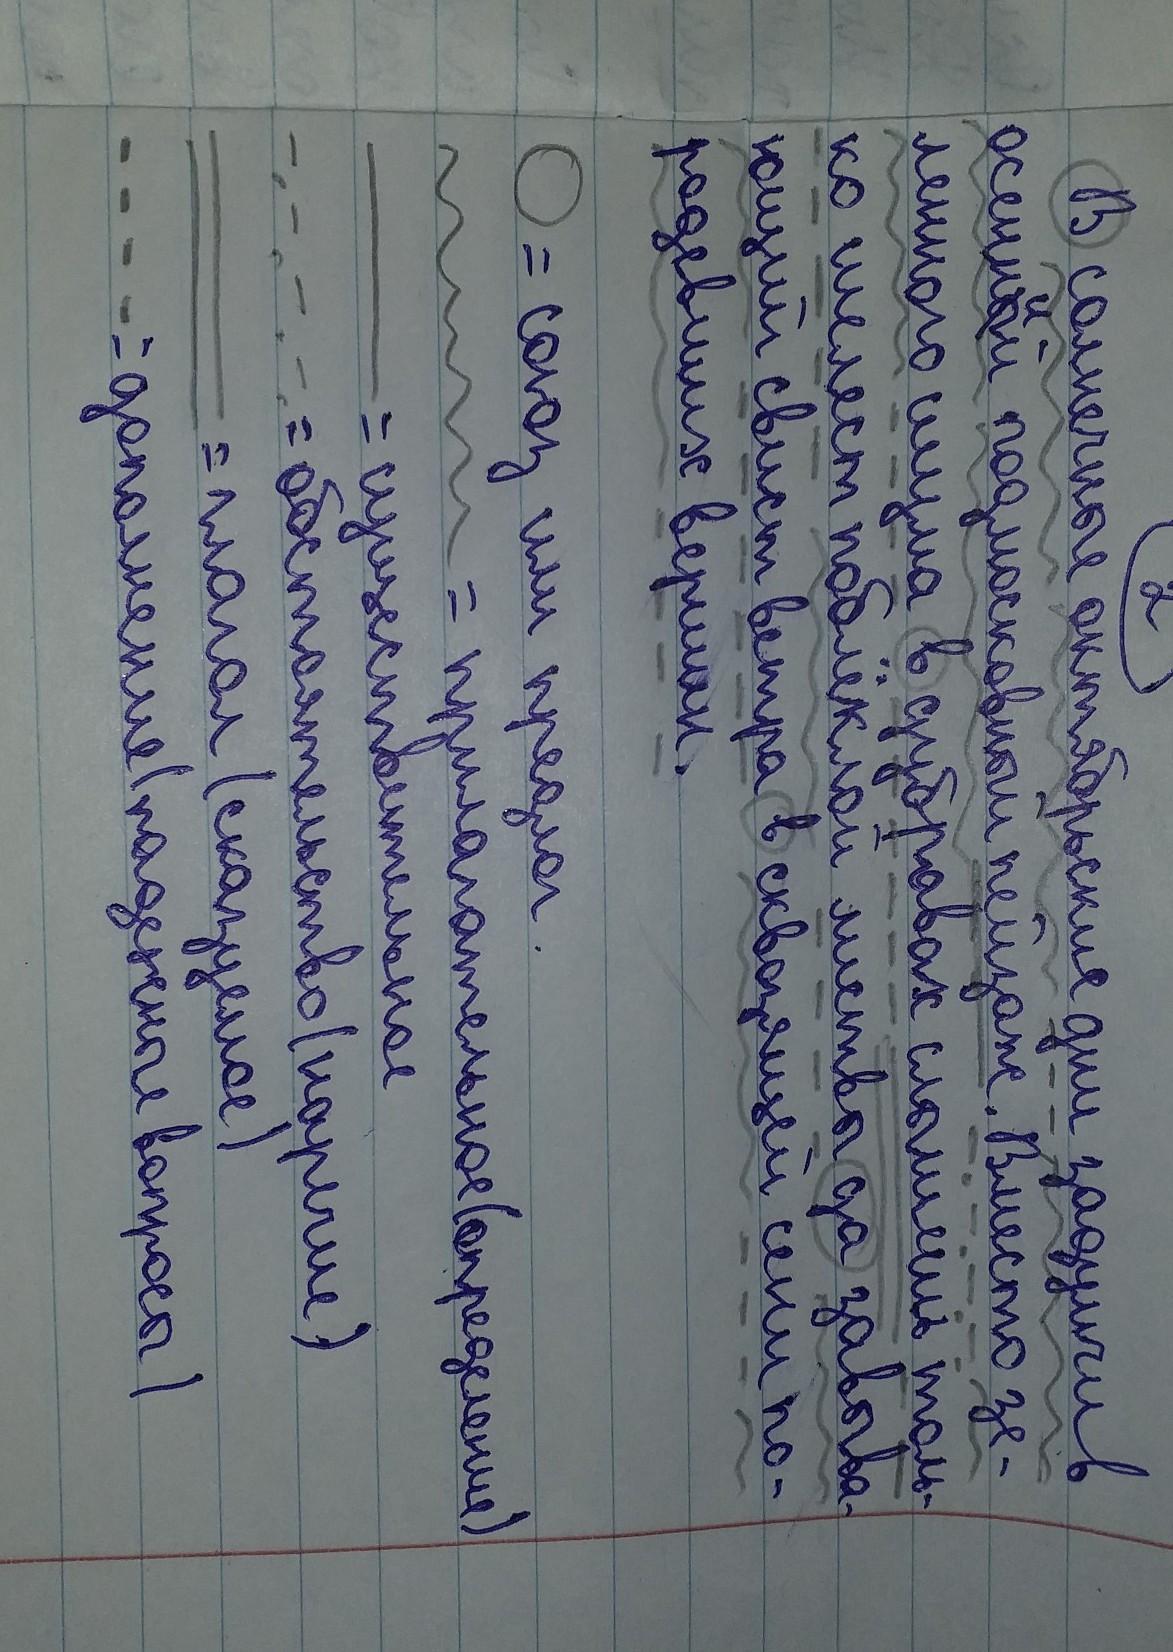 2
В солнечные октябрьские дни задумчив
осенний подмосковный пейзаж. Вместо зе-
леного шума в дубравах слышишь толь-
ко шелест поблёклой листвы да завыва-
ющий свист ветра в сквозящей сени по-
редевших вершин.
= союз или предлог.
= прилагательное (определение)
= существительное
= обстоятельство (наречие)
= глагол (сказуемое)
= дополнение (падежные вопросы)